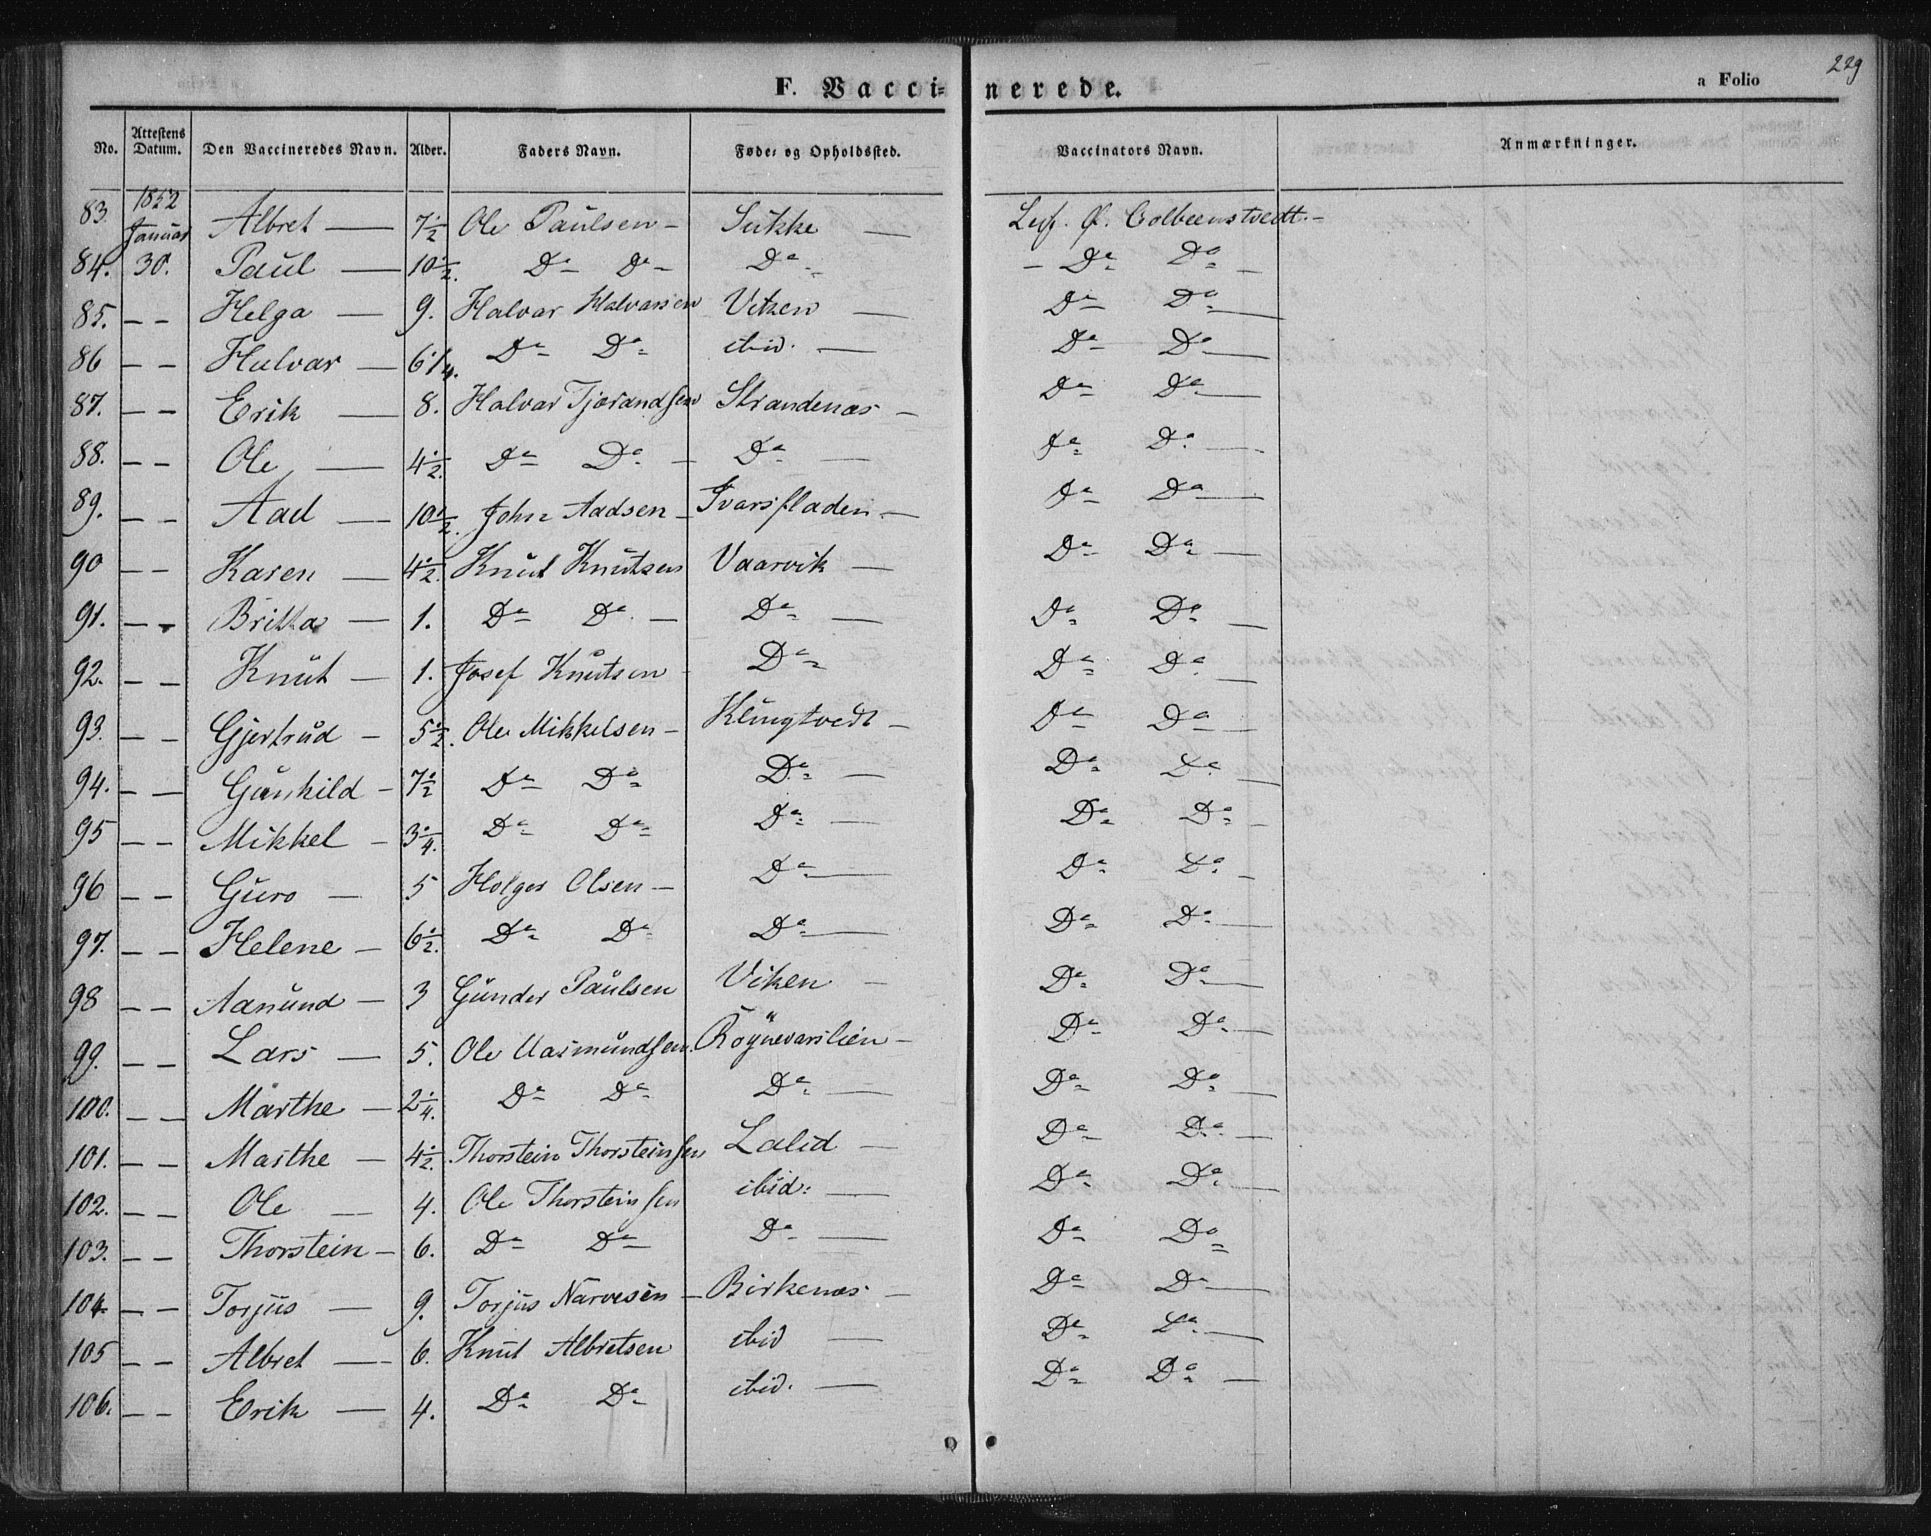 229
F. Vaccinerede.
a Folio
No. | Attestens Datum. | Den Vaccineredes Navn. | Alder. | Faders Navn. | Føde- og Opholdssted. | Vaccinators Navn. | Anmærkninger.
83. | 1852 Januar | Albret — | 7 1/2 | Ole Paulsen — | Sukke — | O. —
84. | 30. | Paul — | 10 1/2. | Do Do — | Do — | — Do Do —
85. | — — | Helga — | 9. | Halvar Halvarsen | Viken — | Do Do —
86 | — — | Halvar — | 6 1/4. | Do Do | ibid. — | Do Do —
87. | — — | Erik — | 8. | Halvar Tjærandsen | Strandenæs — | Do Do —
88. | — — | Ole — | 4 1/2. | Do Do — | Do — | Do Do —
89. | — — | Aad — | 10 1/2. | John Aadsen — | Ivarsfladen — | Do Do —
90 | — — | Karen — | 4 1/2. | Knut Knutsen | Vaarvik — | Do Do —
91. | — — | Britta — | 1. | Do Do — | Do — | Do Do —
92. | — — | Knut — | 1. | Josef Knutsen — | Do | Do Do —
93. | — — | Gjertrud — | 5 1/2. | Ole Mikkelsen — | Klungtvedt — | Do Do —
94. | — — | Gunhild — | 7 1/2 | Do Do | Do — | Do Do —
95 | — — | Mikkel — | 3 1/4. | Do Do | Do — | Do Do —
96 | — — | Guro — | 5 | Holger Olsen — | Do — | Do Do —
97. | — — | Helene — | 6 1/2. | Do Do | Do — | Do Do —
98 | — — | Aanund — | 3 | Gunder Paulsen | Viken — | Do Do —
99. | — — | Lars — | 5. | Ole Aasmundsen. | Røynevarslien — | Do Do —
100. | — — | Marthe — | 2 1/4. | Do Do | Do — | Do Do —
101. | — — | Marthe — | 4 1/2. | Thorstein Thorsteinsen | Lalid — | Do Do —
102. | — — | Ole — | 4. | Ole Thorsteinsen | ibid: — | Do Do —
103. | — — | Thorstein — | 6. | Do Do | Do — | Do Do
104. | — — | Torjus — | 9. | Torjus Narvesen — | Birkenæs — | Do Do —
105 | — — | Albret — | 6. | Knut Albretsen | ibid — | Do Do —
106. | — — | Erik — | 4. | Do Do | ibid. — | Do Do —